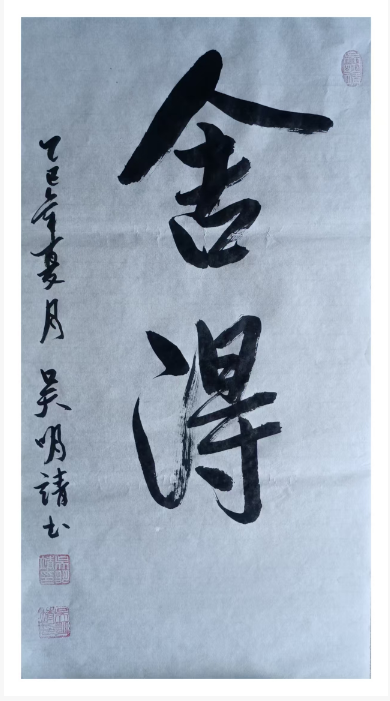 舍得
乙巳年夏月 吴明清书